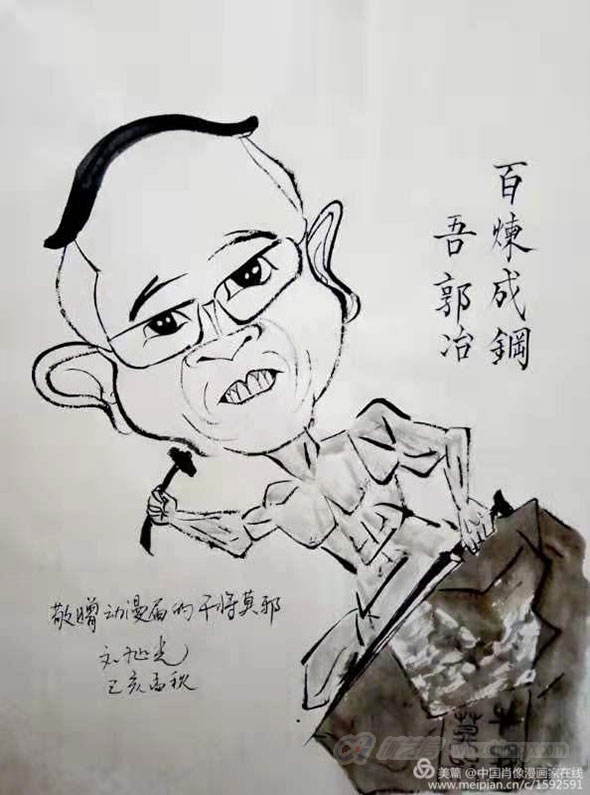 百煉成鋼
吾 郭冶
敬赠动漫届的干将莫邪
己亥孟秋
美篇 @中国肖像漫画家在线
www.meipian.cn/c/1592591